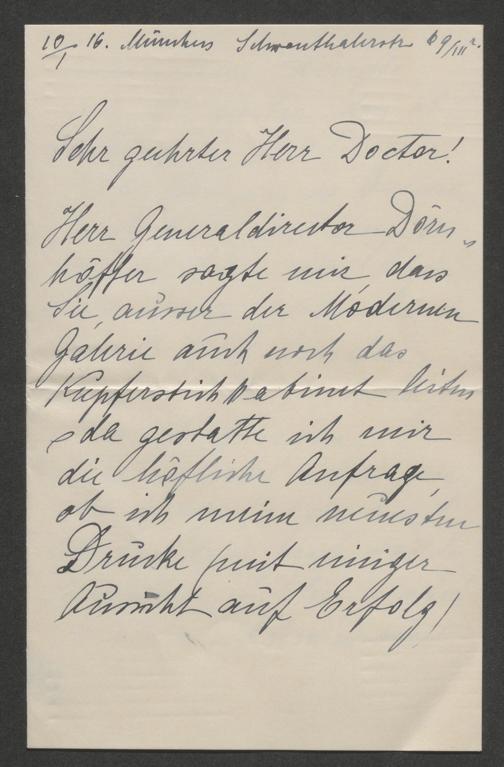 10/I 16. München Schwanthalerstr 69/III r.
Sehr geehrter Herr Doctor!
Herr Generaldirector Dörn-
höffer sagte mir, dass
Sie, ausser der Modernen
Galerie auch noch das
Kupferstichkabinet leiten
da gestatte ich mir
die höfliche Anfrage,
ob ich meine neuesten
Drucke (mit einiger
Aussicht auf Erfolg)